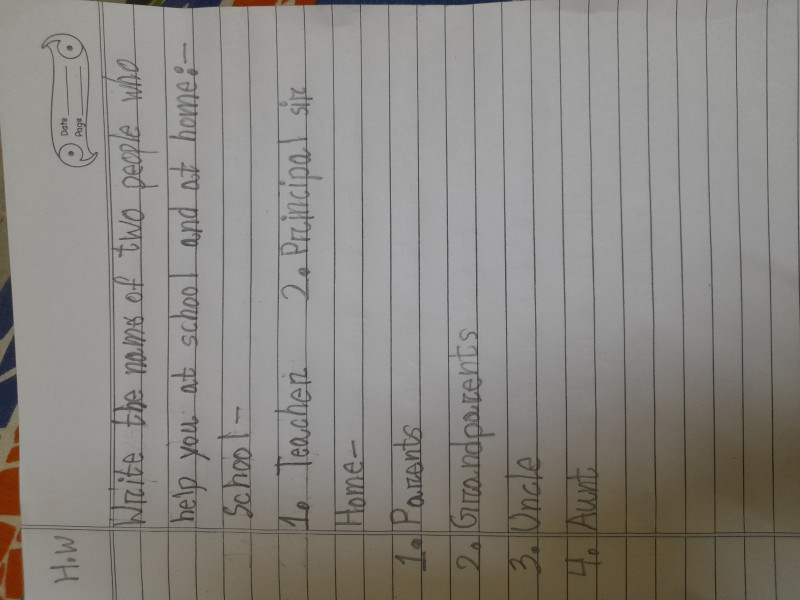 Date
Page
H.W
Write the name of two people who
help you at school and at home:-
School-
1. Teacher 2. Principal sir
Home-
1. Parents
2. Grandparents
3. Uncle
4. Aunt